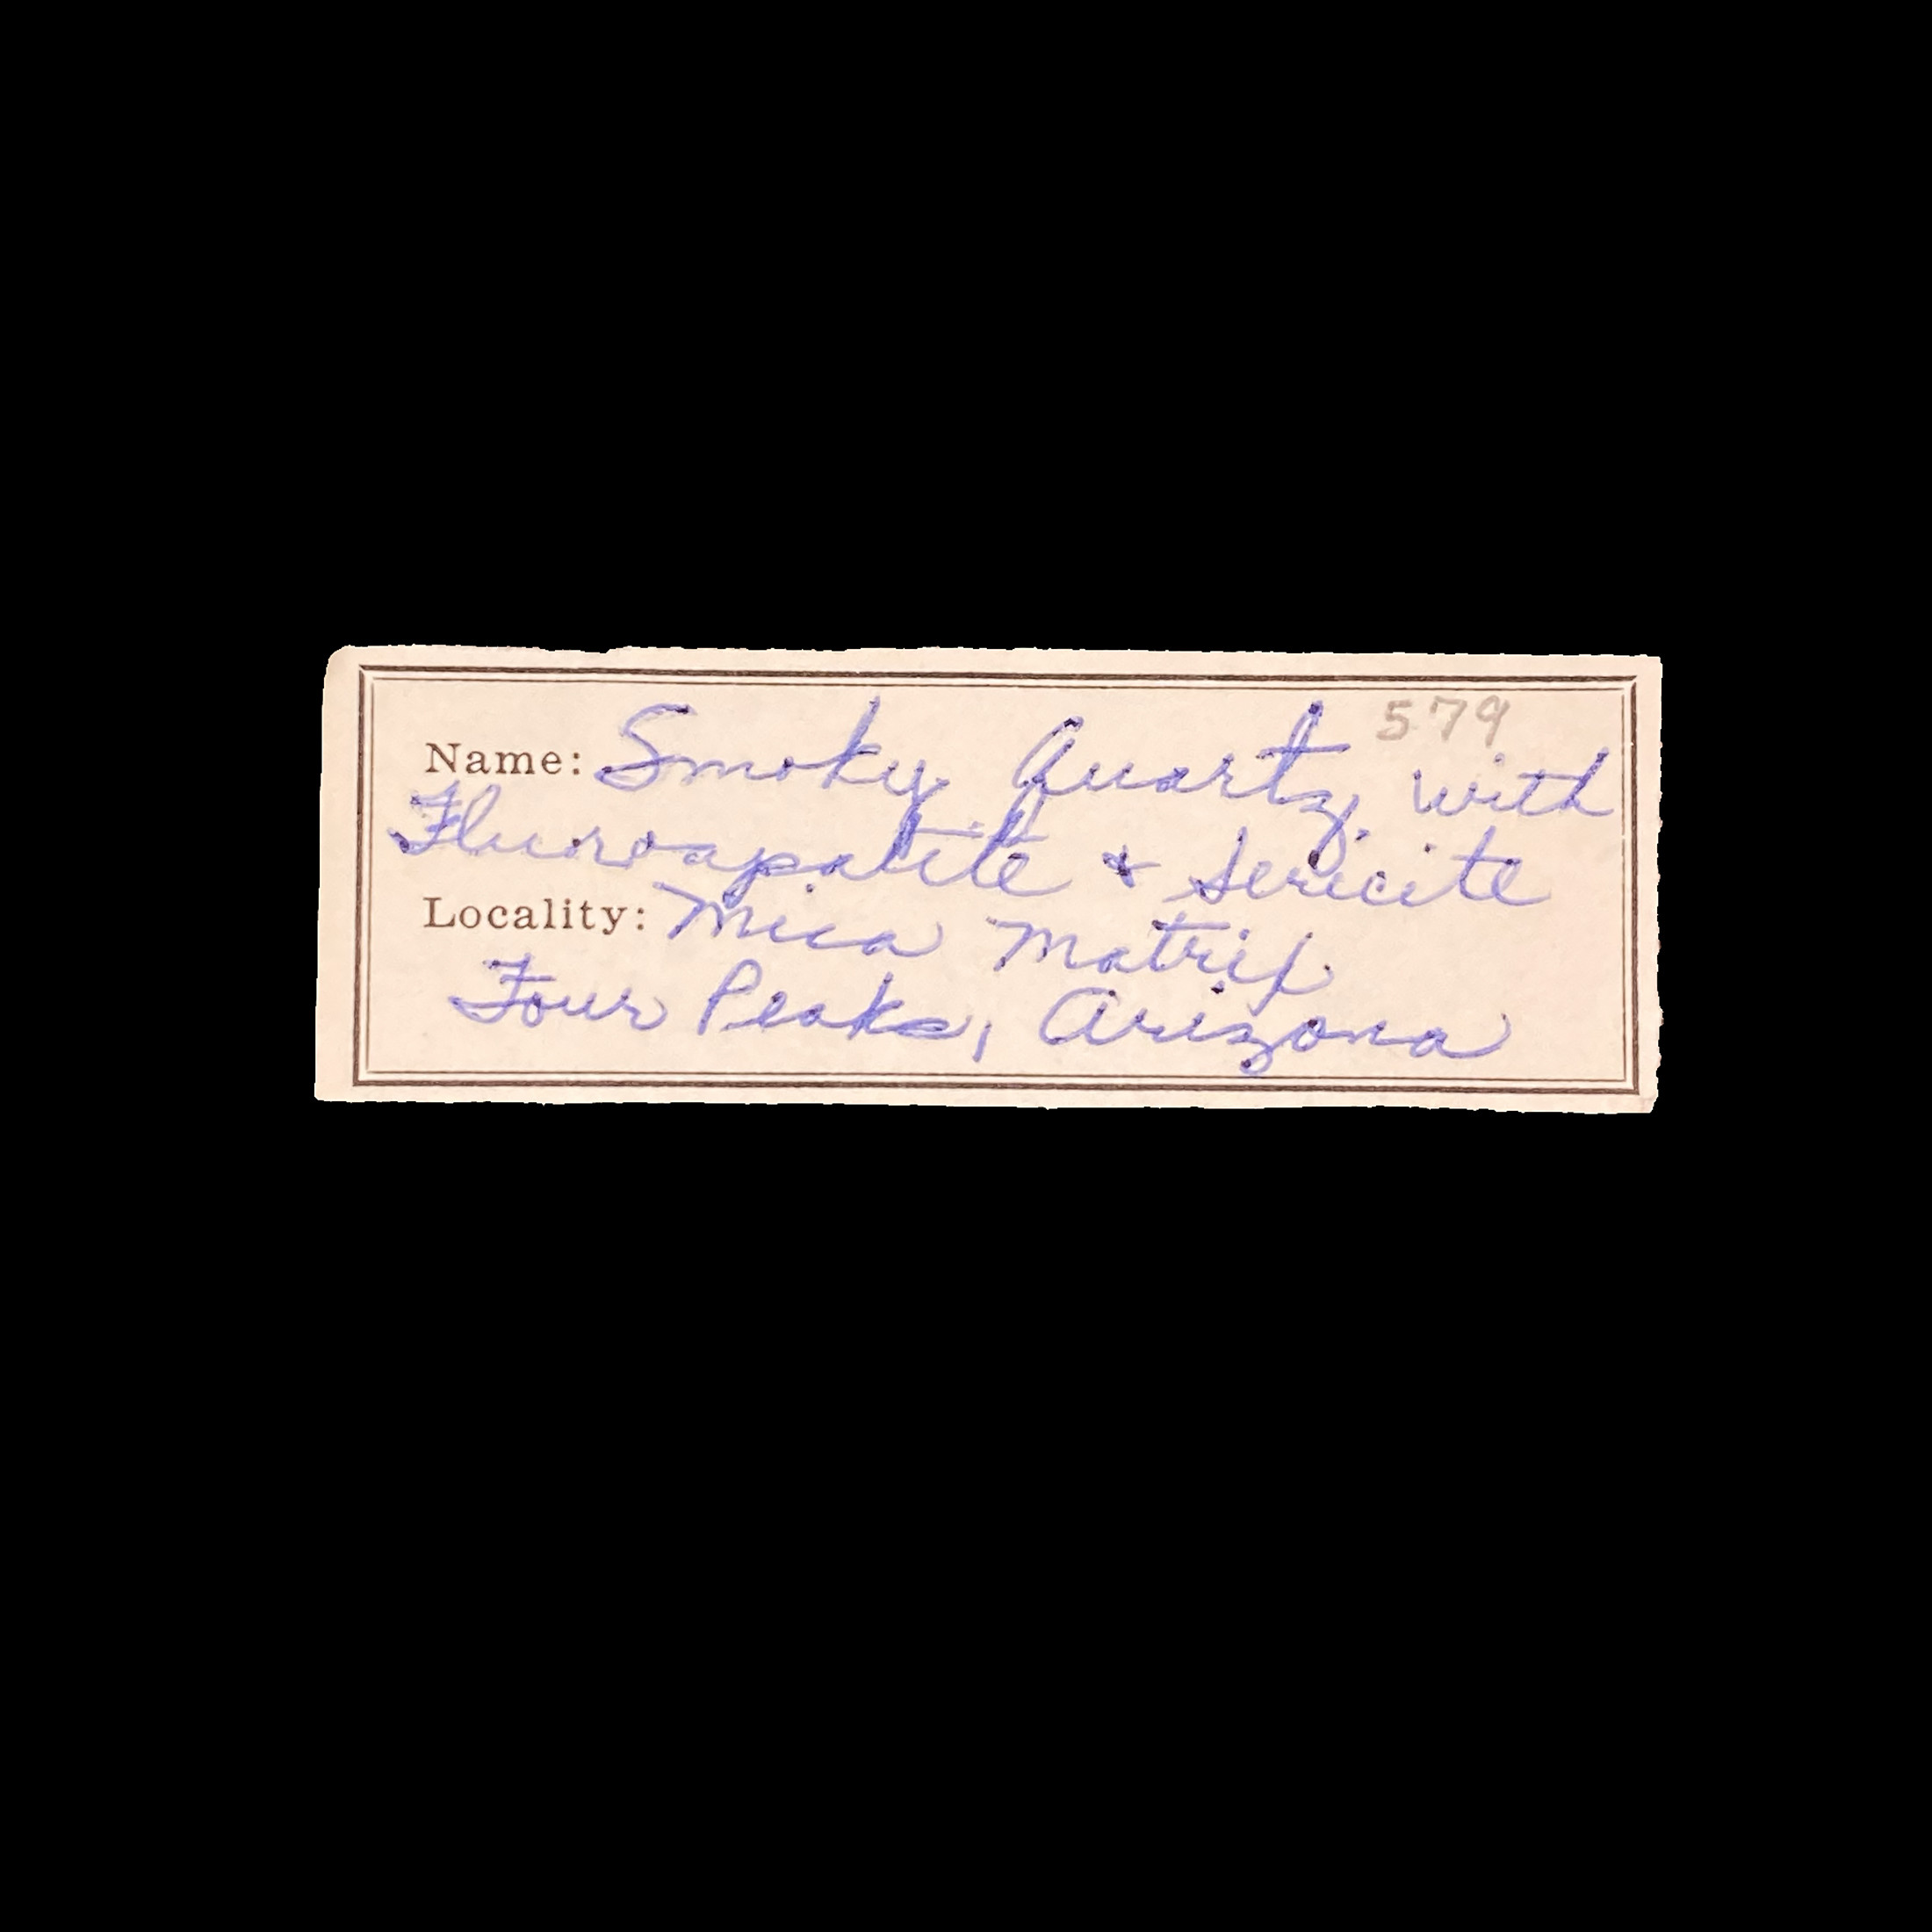 579
Name: Smoky Quartz with
Fluroapatite & Sericite
Locality: Mica Matrix
Four Peaks, Arizona